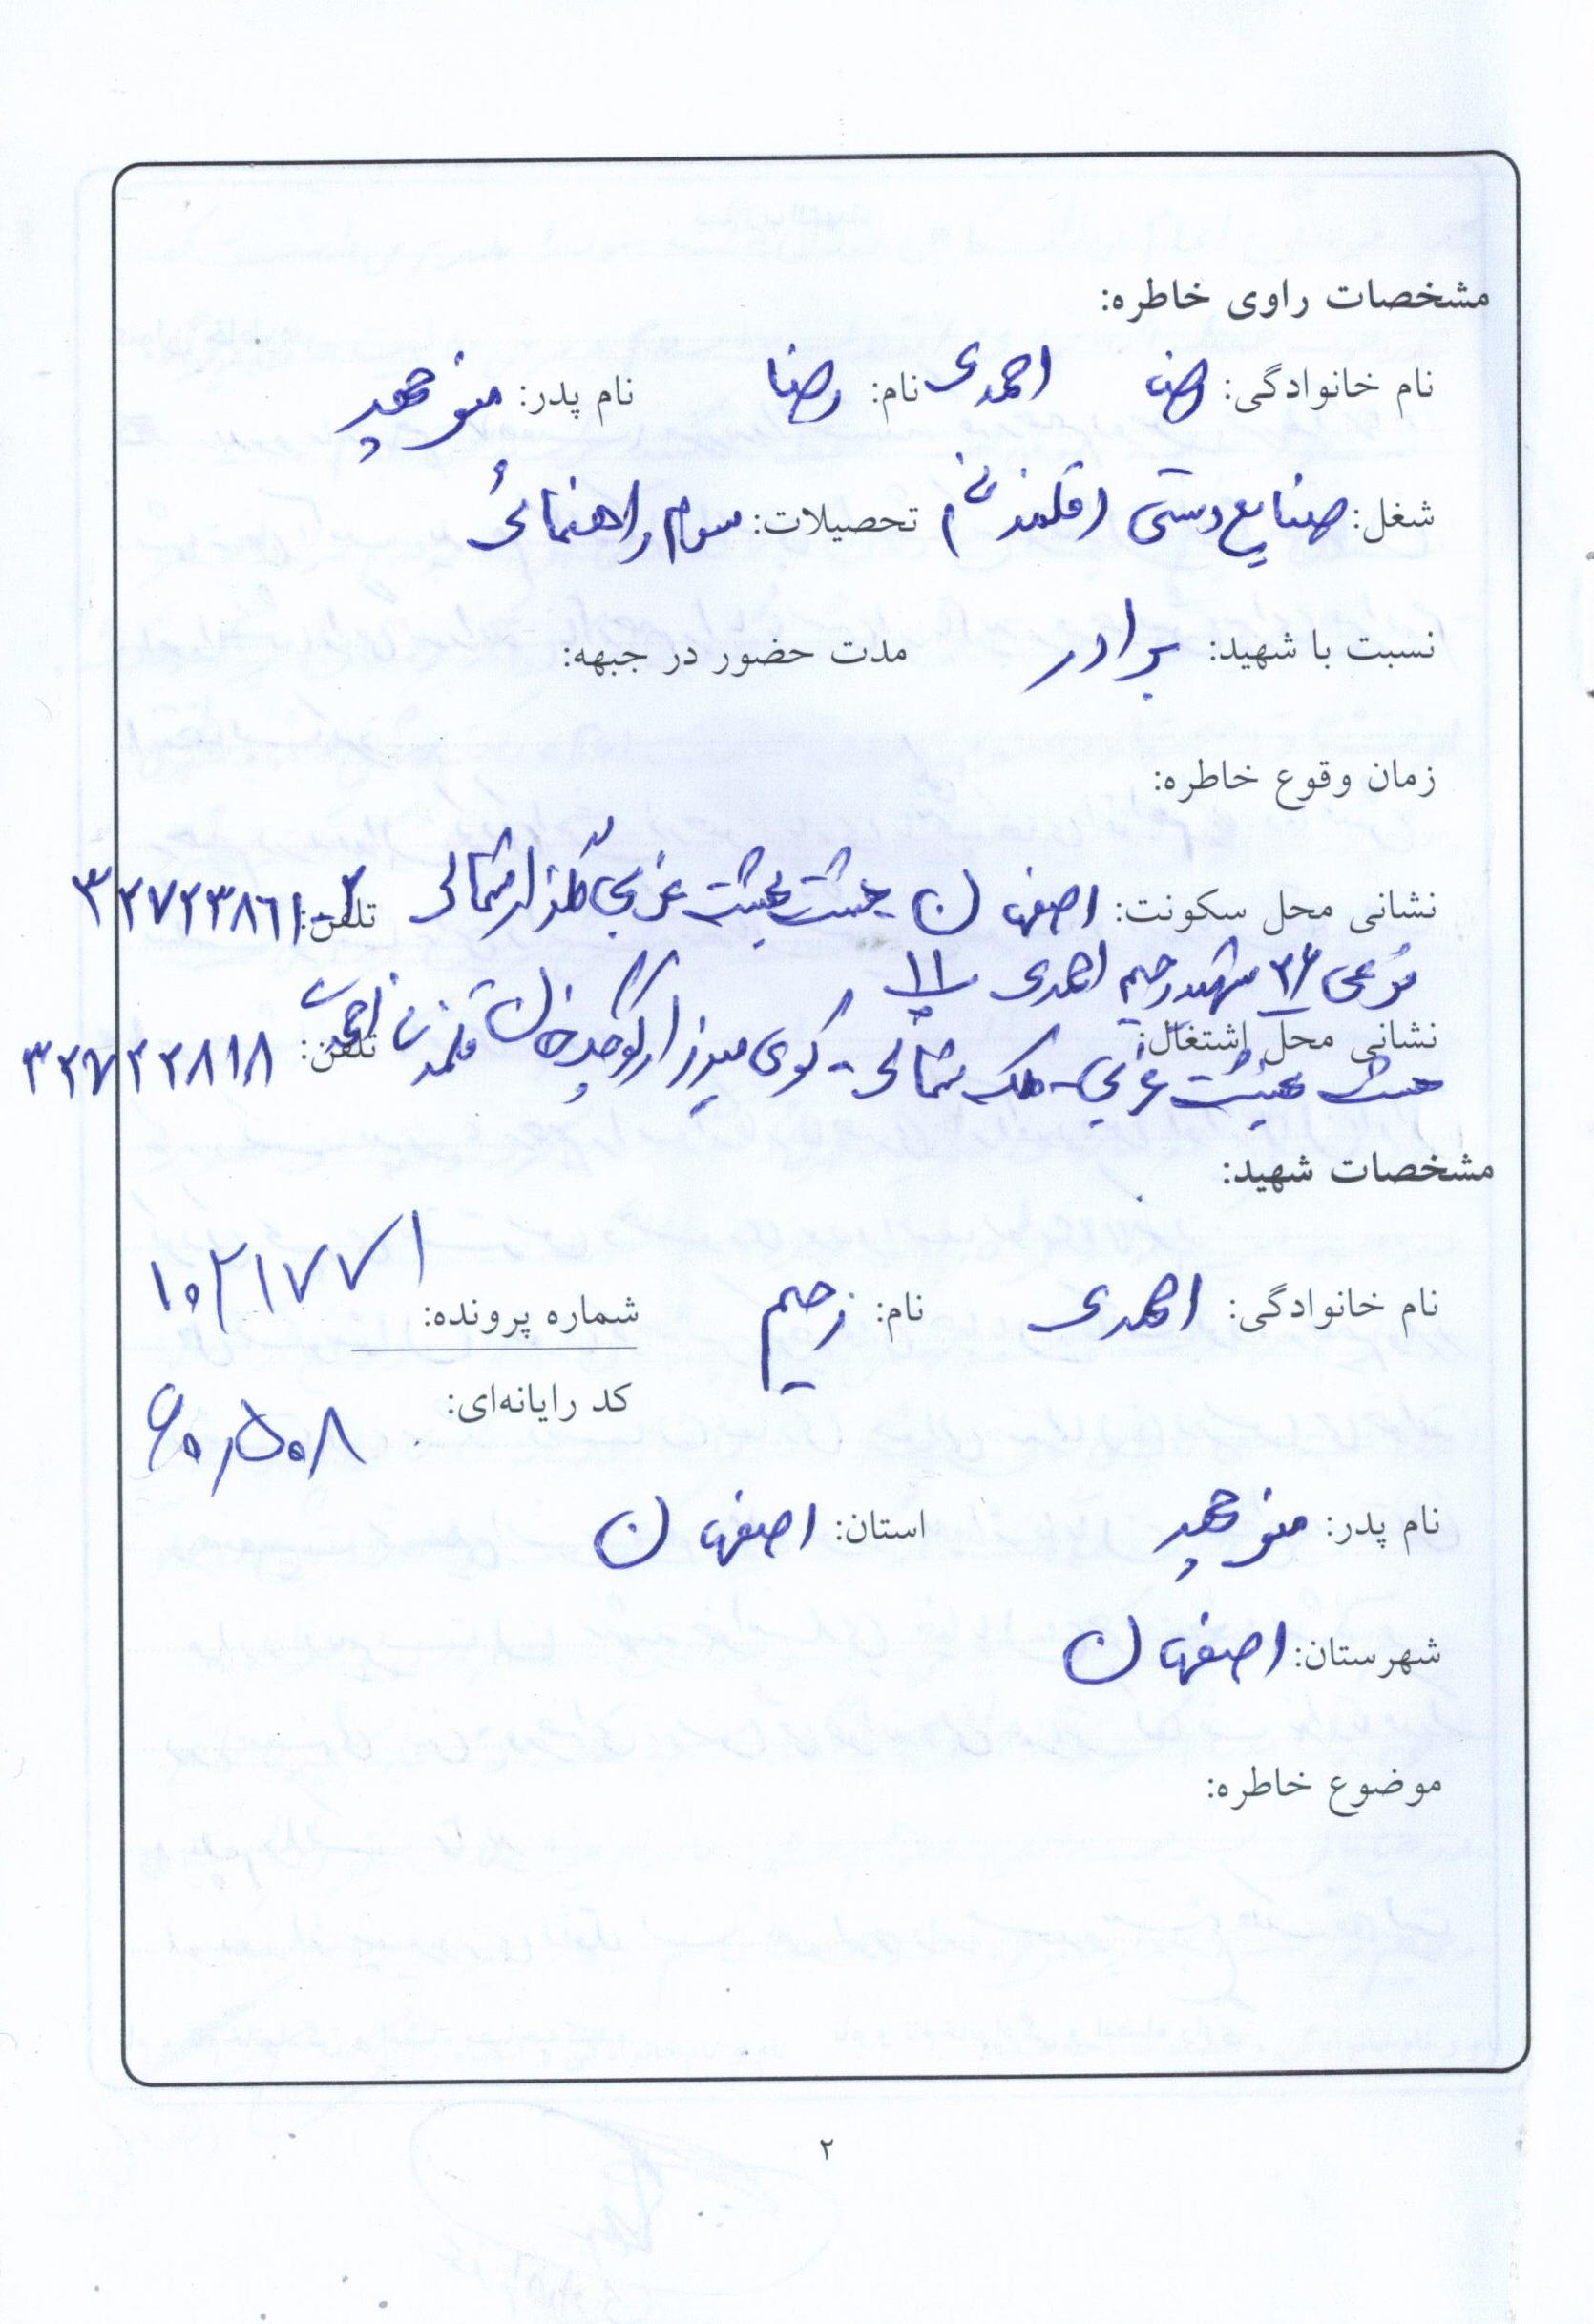 مشخصات راوی خاطره:
نام خانوادگی: رضا احمدی نام: رضا نام پدر: منوچهر
شغل: صنایع دستی (قلمزنی) تحصیلات: سوم راهنمائی
نسبت با شهید: برادر مدت حضور در جبهه:
زمان وقوع خاطره:
نشانی محل سکونت: اصفهان هشت بهشت غربی گلزار شمالی تلفن: ۳۲۷۲۳۸۶۱-۲
فرعی ۳۶ شهید رحیم احمدی پ ۱۱
نشانی محل اشتغال: هشت بهشت غربی - ملک شمالی - کوی میرزا کوچک خان قلمزنی احمدی تلفن: ۳۲۷۲۲۸۱۸
مشخصات شهید:
نام خانوادگی: احمدی نام: رحیم شماره پرونده: ۱۰۲۱۷۷۱
کد رایانه‌ای: ۶۰۰۵۰۸
نام پدر: منوچهر استان: اصفهان
شهرستان: اصفهان
موضوع خاطره:
۲